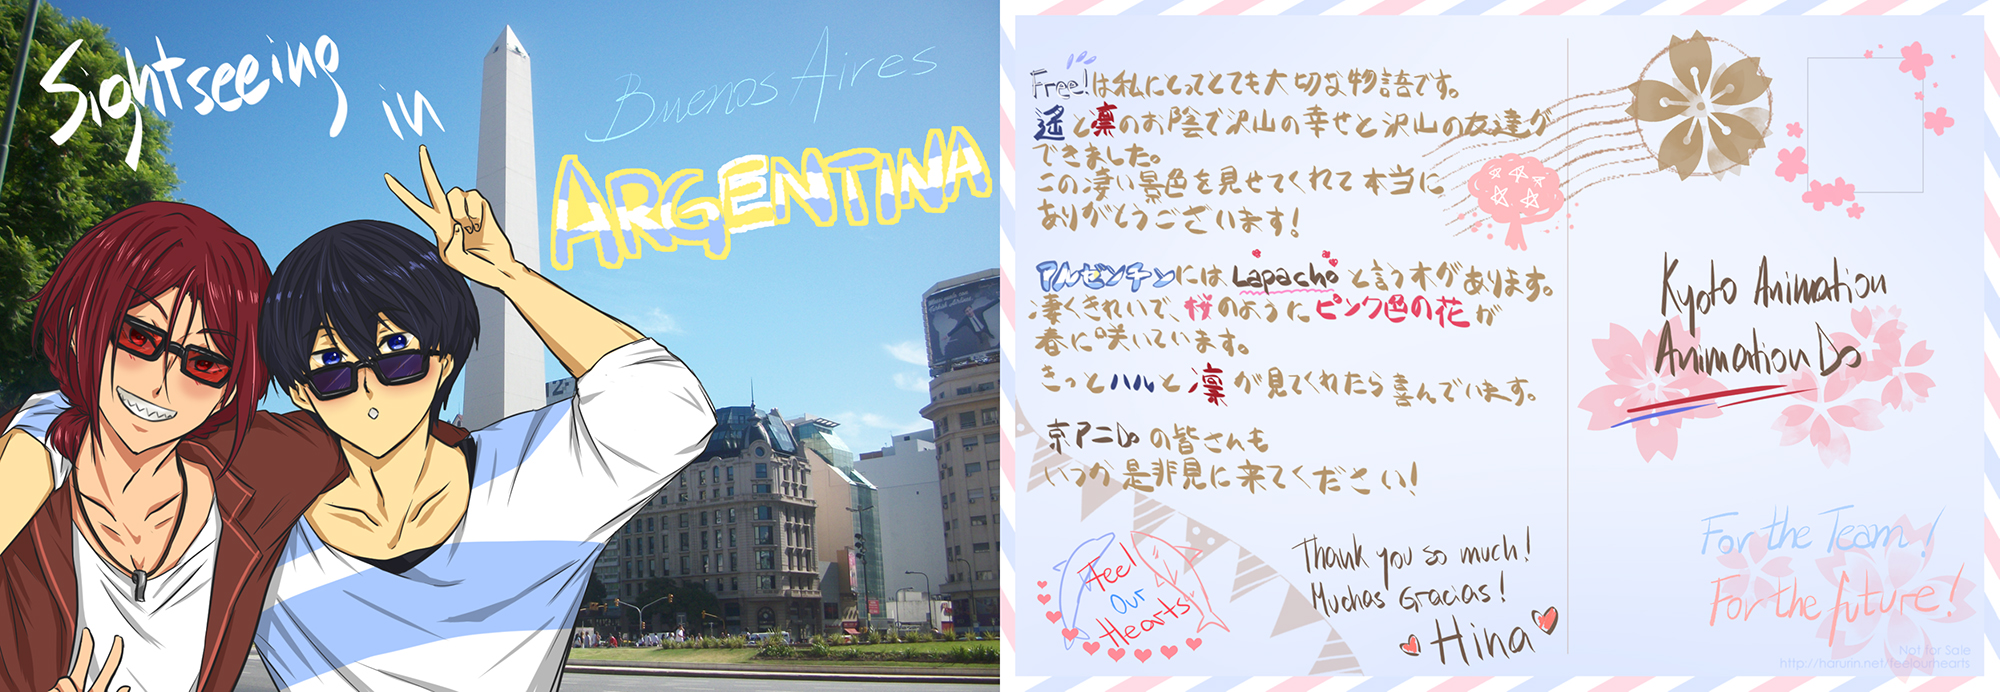 Sightseeing
in
Buenos Aires
ARGENTINA
Free!は私にとってとても大切な物語です。
遥と凛のお陰で沢山の幸せと沢山の友達が
できました。
この凄い景色を見せてくれて本当に
ありがとうございます!
アルゼンチンにはLapachoと言う木があります。
凄くきれいで、桜のようにピンク色の花が
春に咲いています。
きっとハルと凛が見てくれたら喜んでいます。
京アニDoの皆さんも
いつか是非見に来てください!
Feel
Our
Hearts
Thank you so much!
Muchas Gracias!
Hina
Kyoto Animation
Animation Do
For the Team!
For the future!
Not for Sale
http://harurin.net/feelourhearts